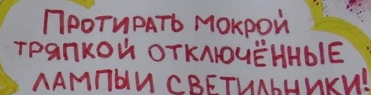 ПРОТИРАТЬ МОКРОЙ
ТРЯПКОЙ ОТКЛЮЧЁННЫЕ
ЛАМПЫ И СВЕТИЛЬНИКИ!